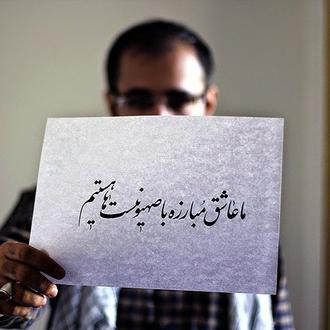 ما عاشق مُبارزه با صهیونیست ها هستیم